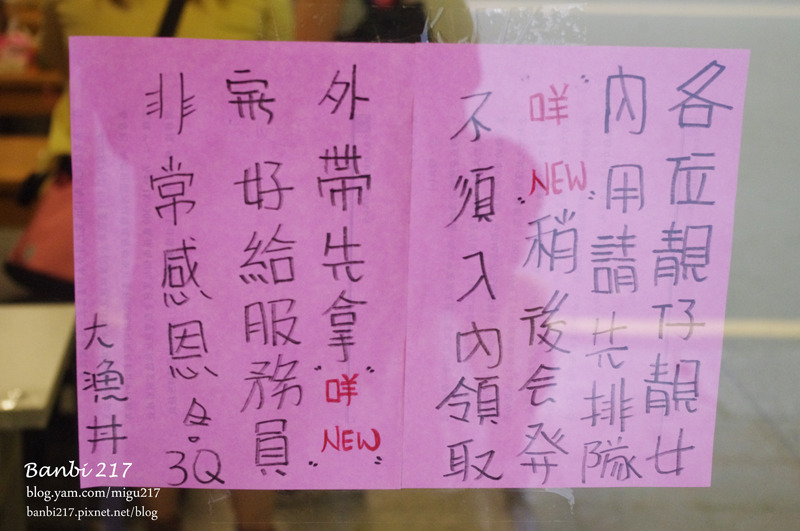 各位靚仔靚女
內用請先排隊
"咩NEW"稍後会発
不須入內領取
外帶先拿"咩NEW"
好給服務員
非常感恩 3Q
大漁井
Banbi 217
blog.yam.com/migu217
banbi217.pixnet.net/blog